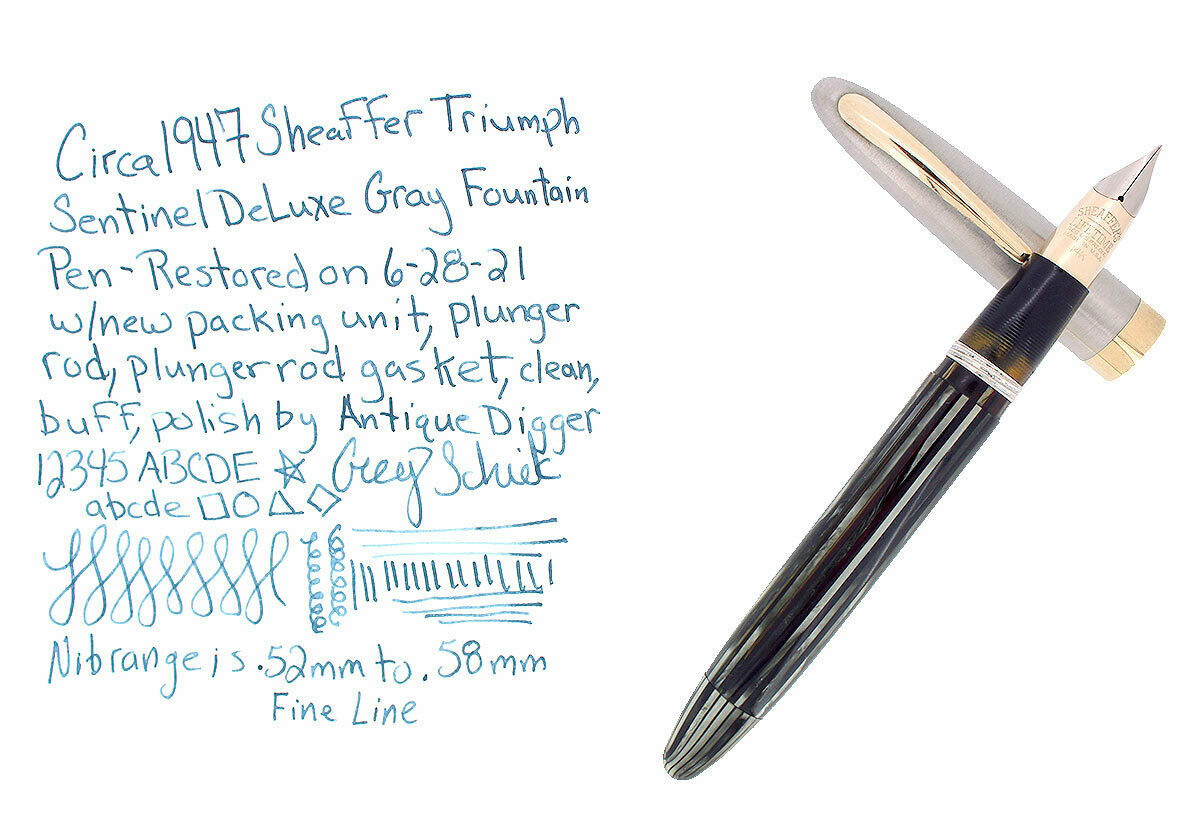 Circa 1947 Sheaffer Triumph
Sentinel DeLuxe Gray Fountain
Pen - Restored on 6-28-21
w/new packing unit, plunger
rod, plunger rod gasket, clean,
buff, polish by Antique Digger
12345 ABCDE
abcde
Nib range is .52mm to .58mm
Fine Line
SHEAFFER'S
LIFETIME
14K